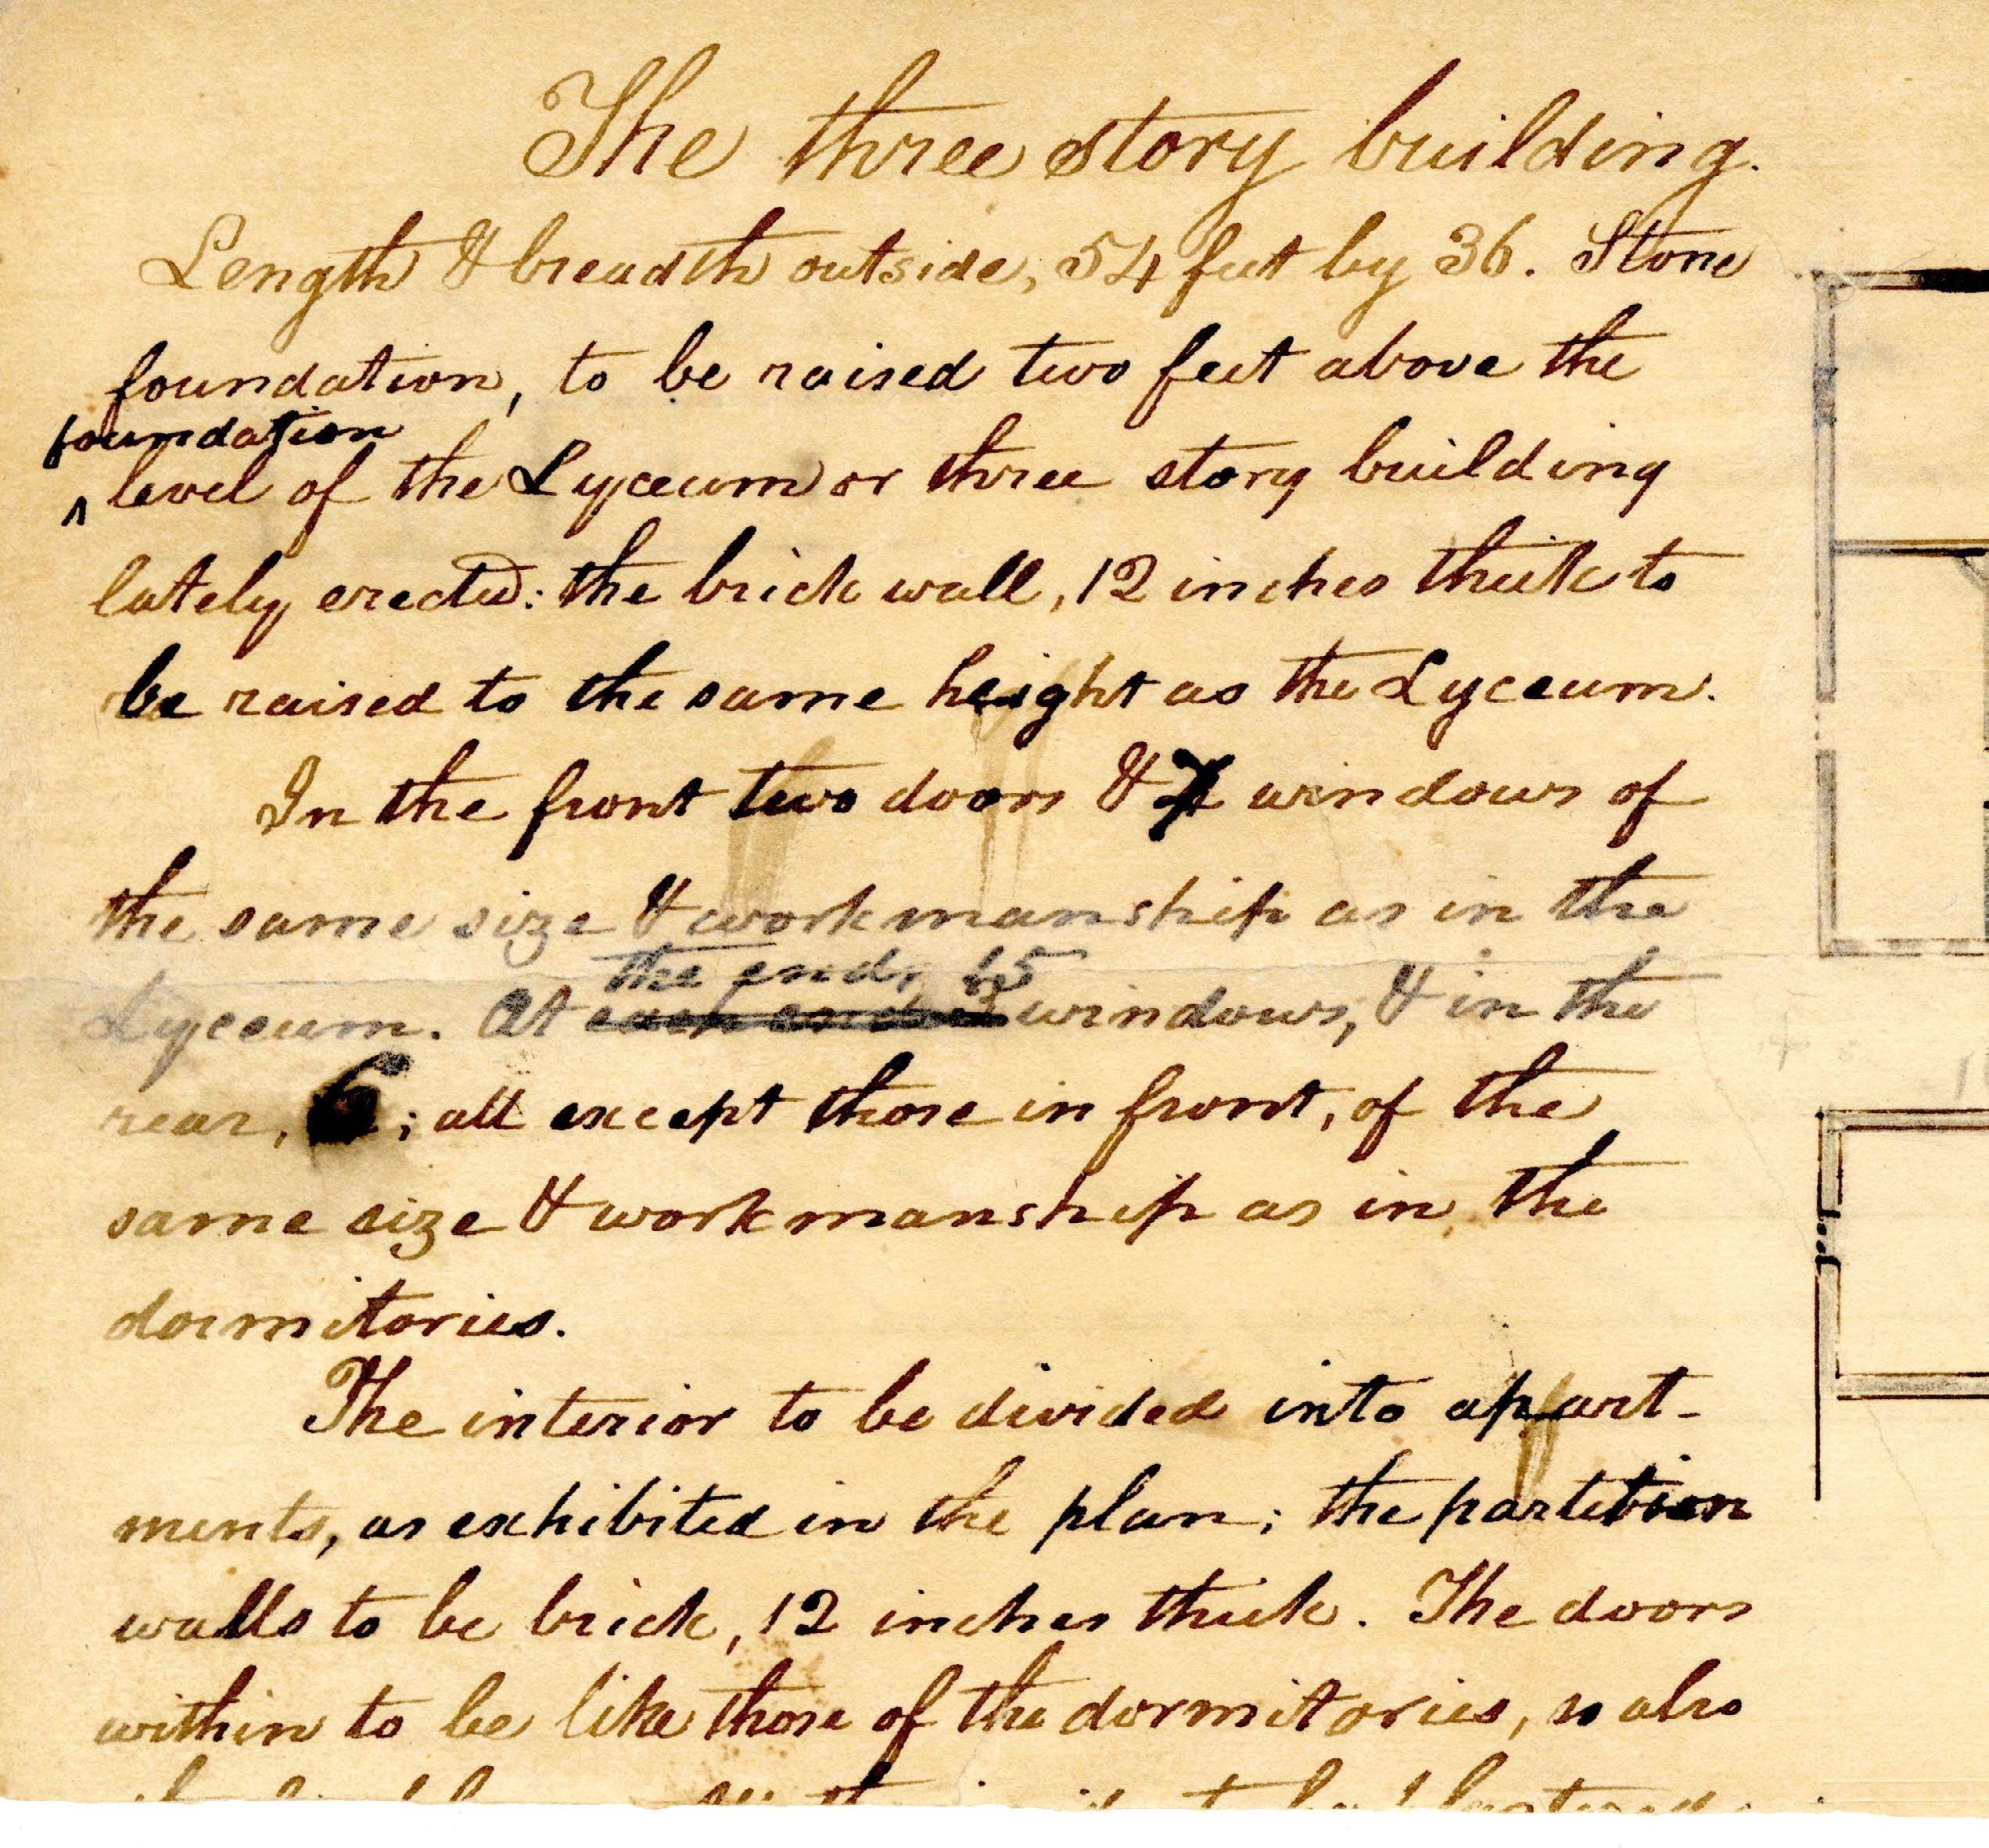 The three story building.
Length & breadth outside, 54 feet by 36. Stone
foundation, to be raised two feet above the
foundation
^ level of the Lyceum or three story building
lately erected: the brick wall, 12 inches thick to
be raised to the same height as the Lyceum.
In the front two doors & 7 windows of
the same size & workmanship as in the
the ends, 15
Lyceum. At each end windows, & in the
rear, 6; all except those in front, of the
same size & workmanship as in the
dormitories.
The interior to be divided into apart-
ments, as exhibited in the plan; the partition
walls to be brick, 12 inches thick. The doors
within to be like those of the dormitories, so also